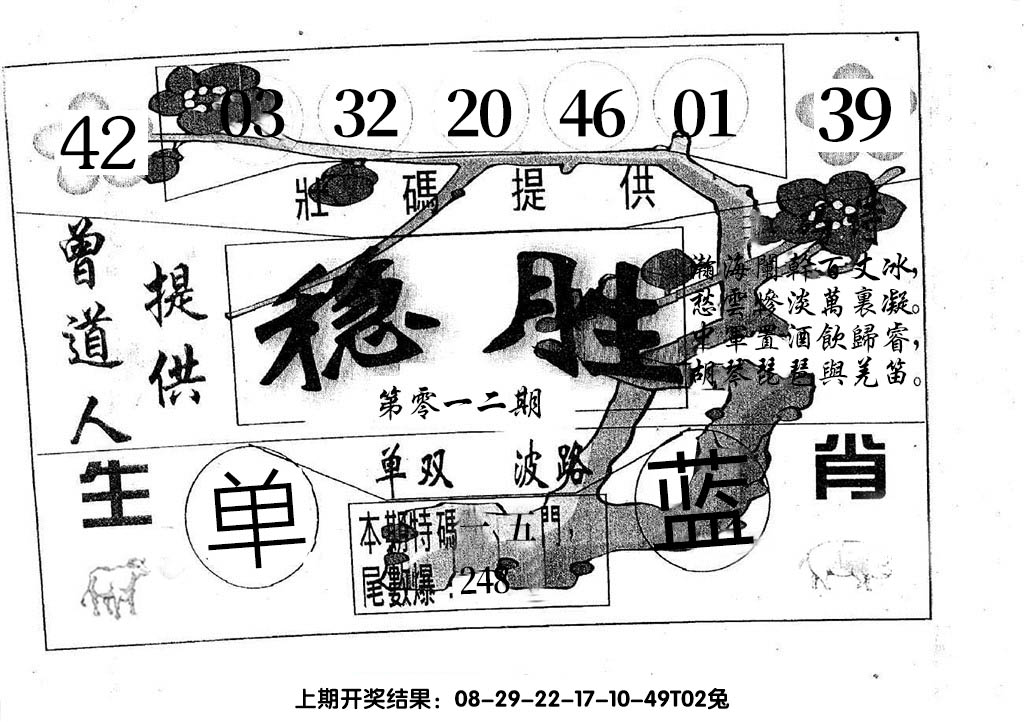 42 03 32 20 46 01 39
壯碼提供
特
曾道人
提供
稳胜
第零一二期
瀚海闌幹百丈冰，
愁雲慘淡萬裏凝。
中軍置酒飲歸睿，
胡琴琵琶與羌笛。
单双 波路
生肖
单
蓝
本期特碼一、五門，
尾數爆：248
上期开奖结果：08-29-22-17-10-49T02兔